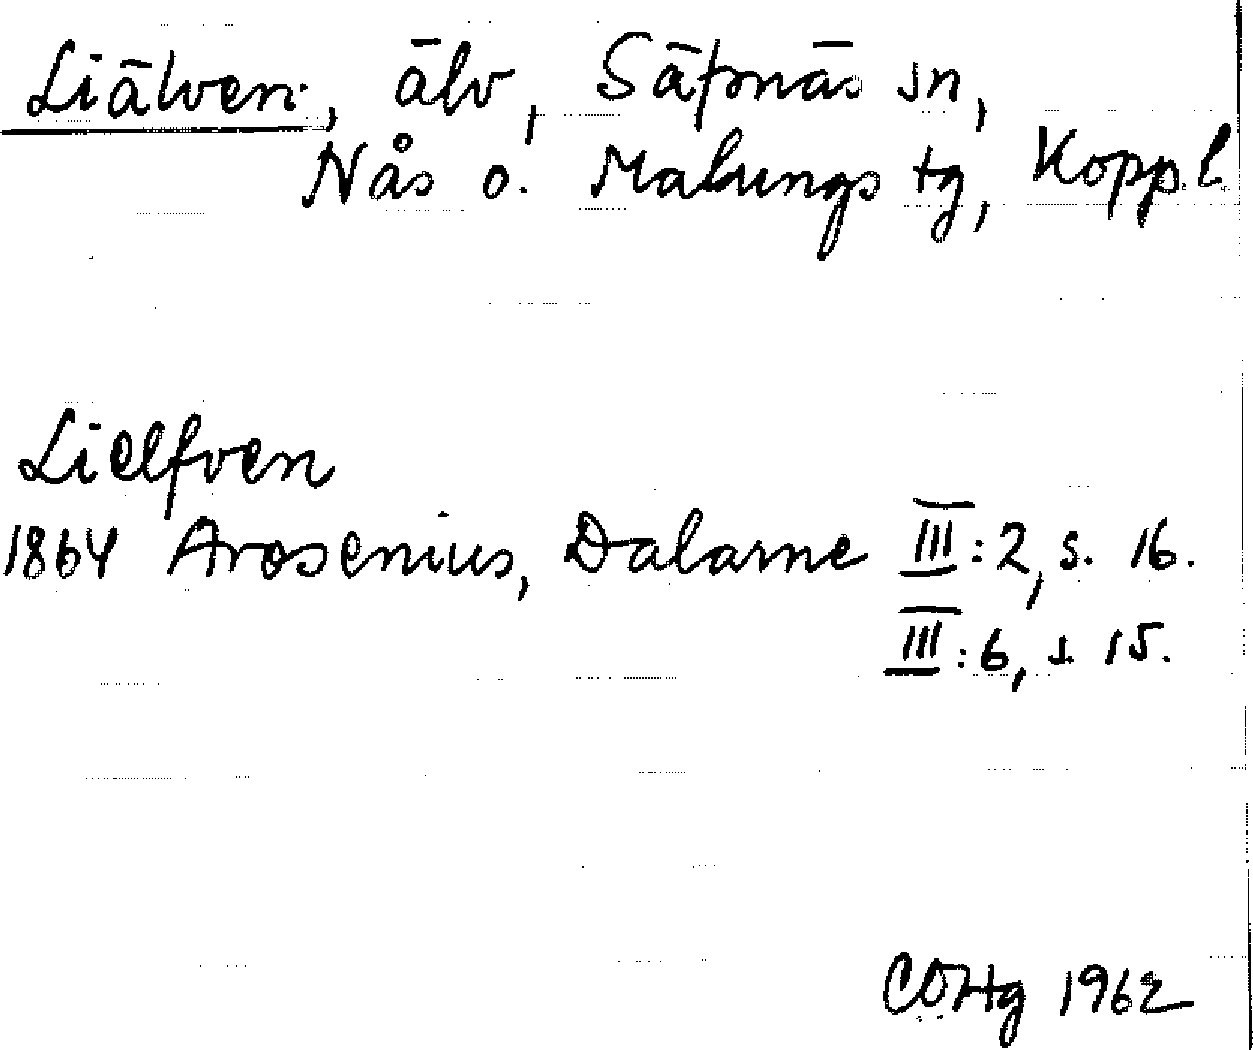 Liälven, älv, Säfsnäs sn,
Nås o. Malungs tg, Kopp. l.
Lielfven
1864 Arosenius, Dalarne III:2, s. 16.
III:6, s 15.
COHg 1962